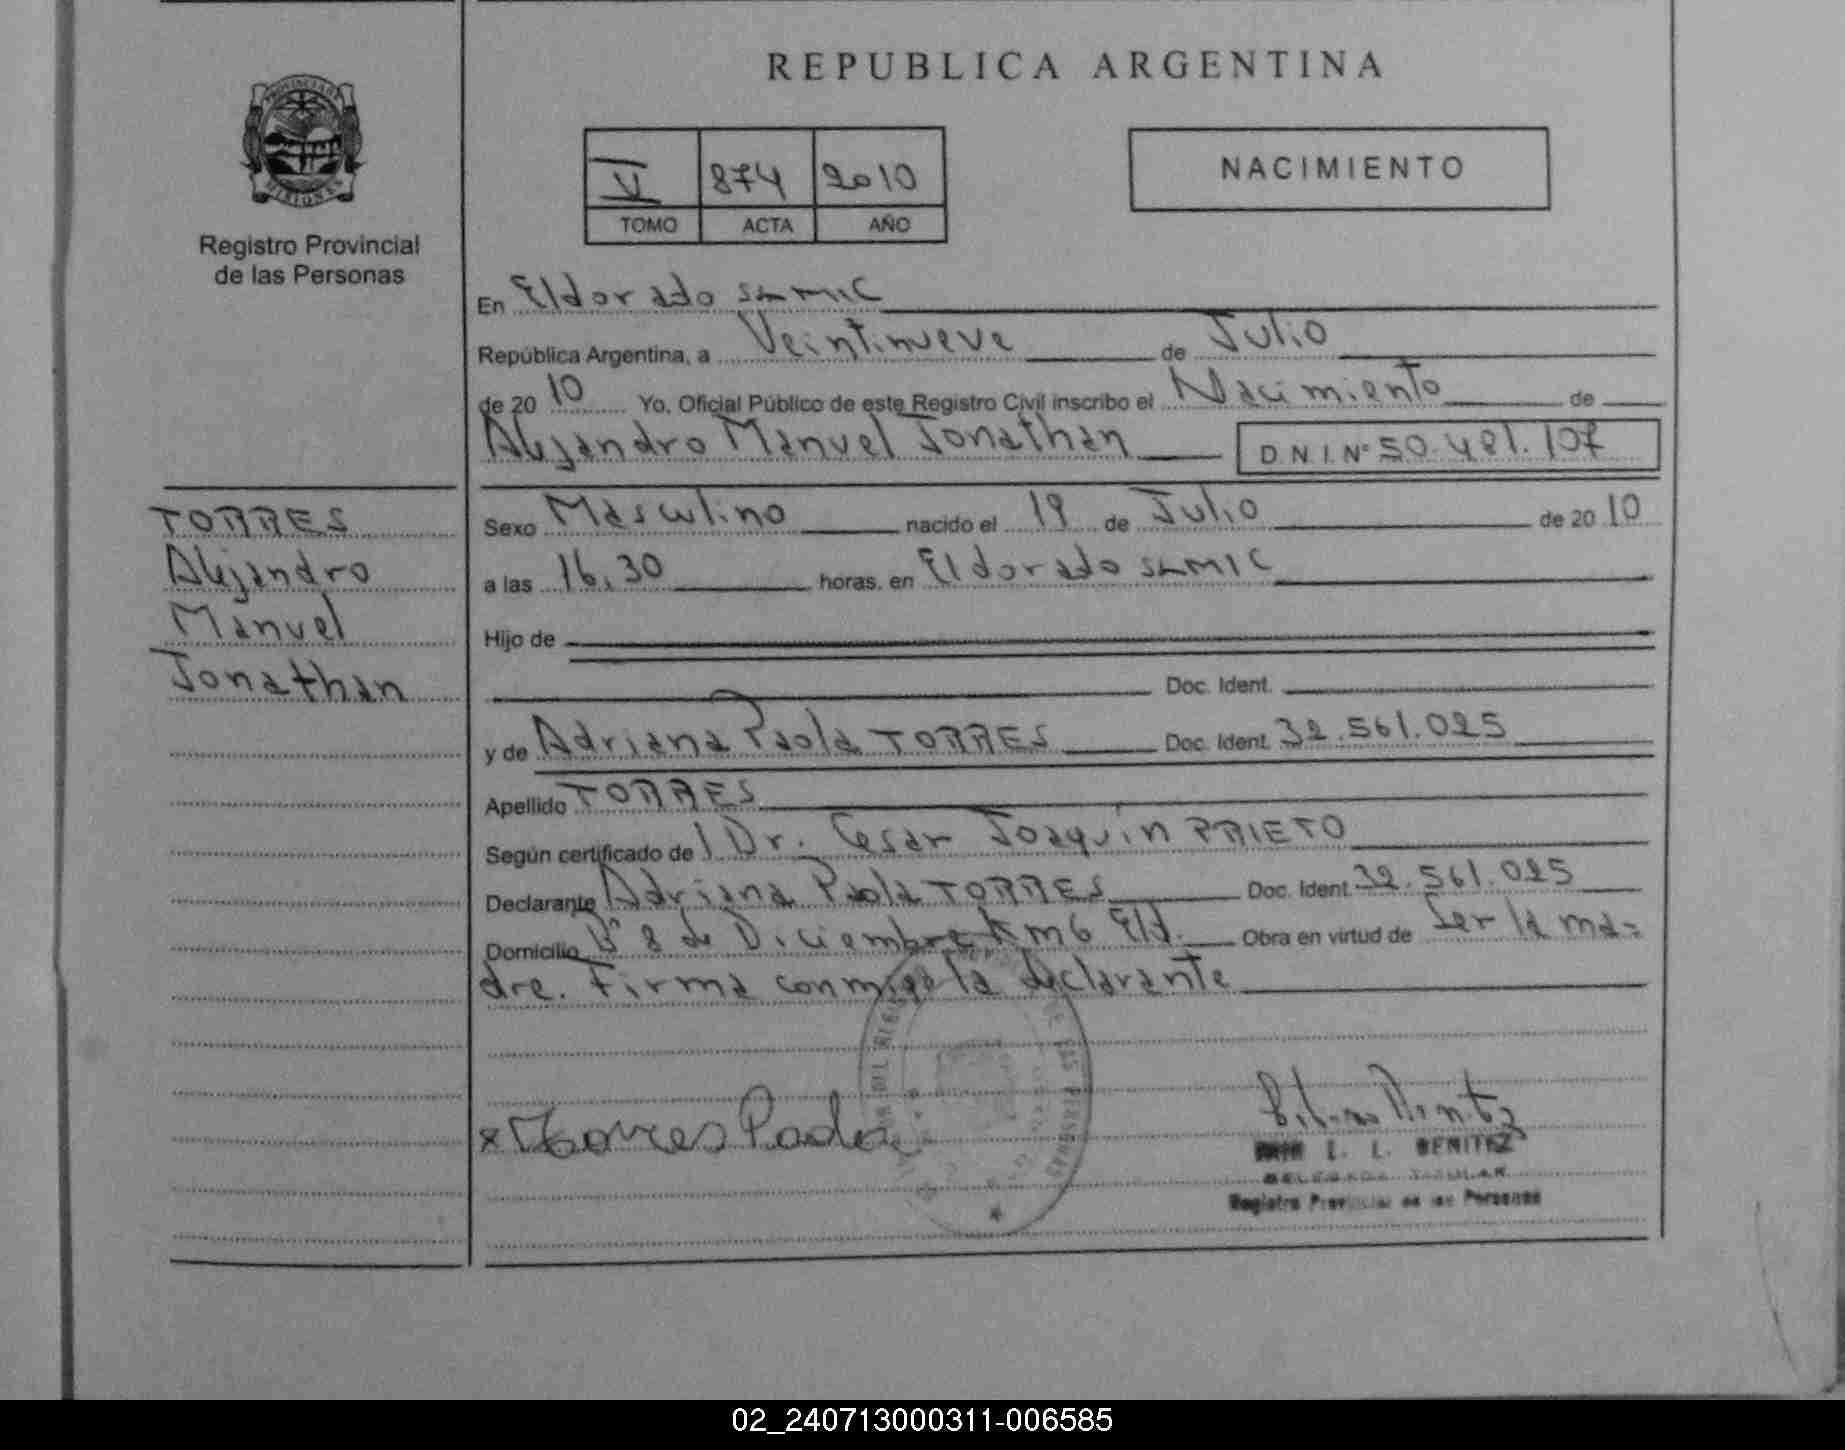 REPUBLICA ARGENTINA
PROVINCIA DE
MISIONES
Registro Provincial
de las Personas
V 874 2010
TOMO ACTA AÑO
NACIMIENTO
En Eldorado SAMIC
República Argentina, a Veintinueve de Julio
de 2010 Yo, Oficial Público de este Registro Civil inscribo el Nacimiento de
Alejandro Manuel Jonathan D.N.I.Nº 50.481.107
TORRES
Alejandro
Manuel
Jonathan
Sexo Masculino nacido el 19 de Julio de 2010
a las 16,30 horas, en Eldorado SAMIC
Hijo de
Doc. Ident.
y de Adriana Paola TORRES Doc. Ident. 32.561.025
Apellido TORRES
Según certificado de Dr. Cesar Joaquin PRIETO
Declarante Adriana Paola TORRES Doc. Ident. 32.561.025
Domicilio Bº 8 de Diciembre Km 6 Eld. Obra en virtud de Ser la ma=
dre. Firma conmigo la declarante
x Torres Paola
DE LAS PERSONAS
L. BENITEZ
DELEGADA TITULAR
Registro Provincial de las Personas
02_240713000311-006585